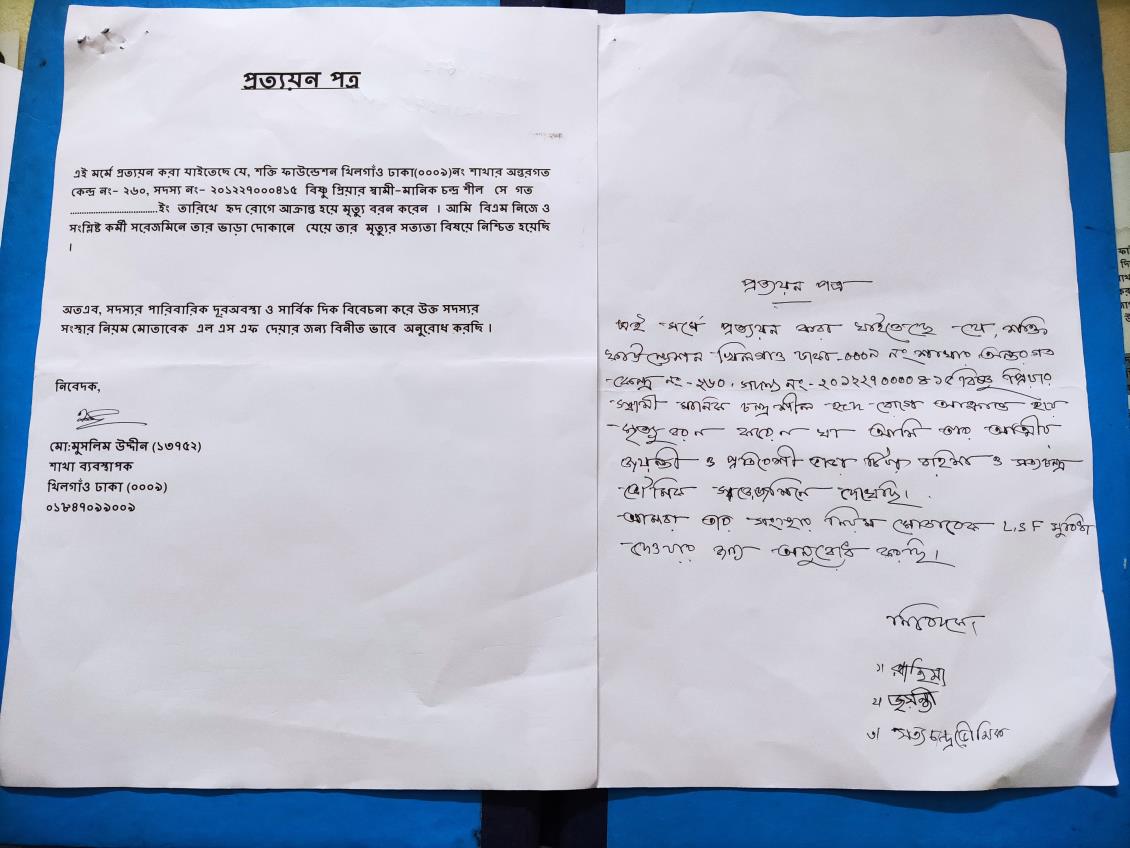 প্রত্যয়ন পত্র
এই মর্মে প্রত্যয়ন করা যাইতেছে যে, শক্তি ফাউন্ডেশন খিলগাঁও ঢাকা(০০০৯)নং শাখার অন্তরগত
কেন্দ্র নং- ২৬০, সদস্য নং- ২০১২২৭০০০৪১৫ বিষ্ণু প্রিয়ার স্বামী-মানিক চন্দ্র শীল সে গত
......................................ইং তারিখে হৃদ রোগে আক্রান্ত হয়ে মৃত্যু বরন করেন । আমি বিএম নিজে ও
সংশ্লিষ্ট কর্মী সরেজমিনে তার ভাড়া দোকানে যেয়ে তার মৃত্যুর সত্যতা বিষয়ে নিশ্চিত হয়েছি
।
অতএব, সদস্যর পারিবারিক দূরঅবস্থা ও সার্বিক দিক বিবেচনা করে উক্ত সদস্যর
সংস্থার নিয়ম মোতাবেক এল এস এফ দেয়ার জন্য বিনীত ভাবে অনুরোধ করছি ।
নিবেদক,
মো:মুসলিম উদ্দীন (১৩৭৫২)
শাখা ব্যবস্থাপক
খিলগাঁও ঢাকা (০০০৯)
০১৮৪৭০৯৯০০৯
প্রত্যয়ন পত্র
এই মর্মে প্রত্যয়ন করা যাইতেছে যে, শক্তি
ফাউন্ডেশন খিলগাও ঢাকা-০০০৯ নং শাখার অন্তরগত
কেন্দ্র নং-২৬০, সদস্য নং-২০১২২৭০০০০৪১৫ বিষ্ণু প্রিয়ার
স্বামী মানিক চন্দ্র শীল হৃদ রোগে আক্রান্ত হয়ে
মৃত্যু বরন করেন যা আমি তার আত্মীয়
জয়ন্তী ও প্রতিবেশী রহিমা ও সত্য চন্দ্র
ভৌমিক সরেজমিনে দেখেছি।
আমরা তার সংস্থার নিয়ম মোতাবেক L.S F সুবিধা
দেওয়ার জন্য অনুরোধ করছি।
নিবেদন
১। রাহিমা
২। জয়ন্তী
৩। সত্য চন্দ্র ভৌমিক